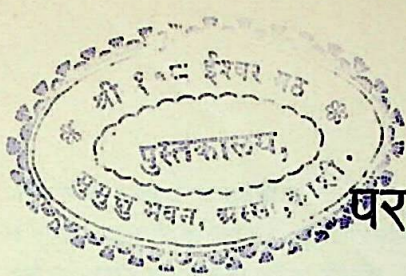 श्री १०८ ईश्वर मठ
पुस्तकालय,
मुमुक्षु भवन, अस्सी, काशी.
पर